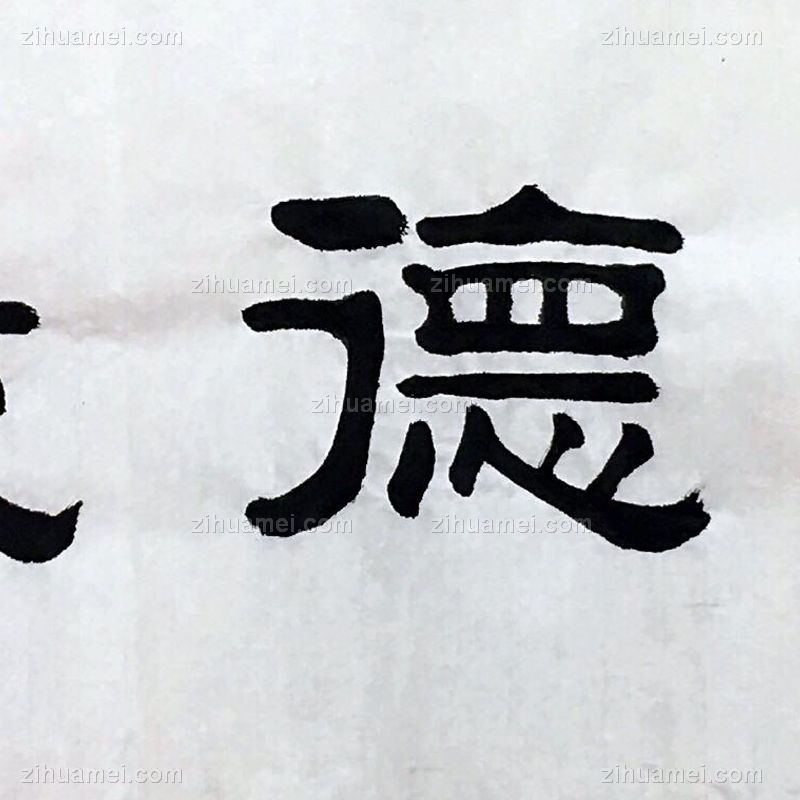 德
zihuamei.com zihuamei.com
zihuamei.com zihuamei.com
zihuamei.com
zihuamei.com zihuamei.com
zihuamei.com zihuamei.com